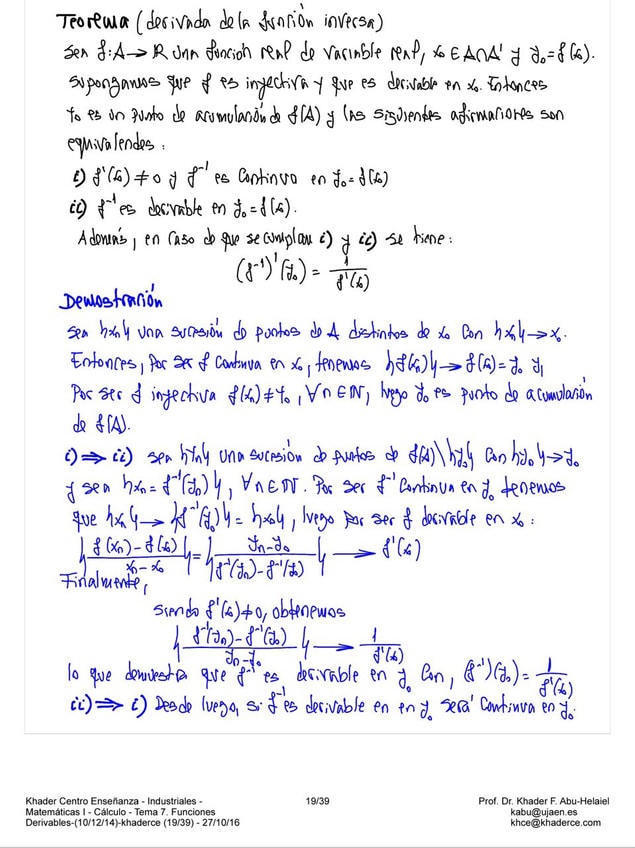 Teorema (derivada de la función inversa)
Sea f: A → R una función real de variable real, x₀ ∈ A∩A' y y₀ = f(x₀).
Supongamos que f es inyectiva y que es derivable en x₀. Entonces
y₀ es un punto de acumulación de f(A) y las siguientes afirmaciones son
equivalentes:
i) f'(x₀) ≠ 0 y f⁻¹ es continua en y₀ = f(x₀)
ii) f⁻¹ es derivable en y₀ = f(x₀).
Además, en caso de que se cumplan i) y ii) se tiene:
(f⁻¹)'(y₀) = 1/f'(x₀)
Demostración
Sea {xₙ} una sucesión de puntos de A distintos de x₀ con {xₙ} → x₀.
Entonces, por ser f continua en x₀, tenemos {f(xₙ)} → f(x₀) = y₀ y,
Por ser f inyectiva f(xₙ) ≠ y₀, ∀n ∈ ℕ, luego y₀ es punto de acumulación
de f(A).
i) ⇒ ii) Sea {yₙ} una sucesión de puntos de f(A)\{y₀} con {yₙ} → y₀
y sea {xₙ = f⁻¹(yₙ)}, ∀n ∈ ℕ. Por ser f⁻¹ continua en y₀ tenemos
que {xₙ} → {f⁻¹(y₀)} = {x₀}, luego por ser f derivable en x₀:
{(f(xₙ) − f(x₀))/(xₙ − x₀)} = {(yₙ − y₀)/(f⁻¹(yₙ) − f⁻¹(y₀))} → f'(x₀)
Finalmente,
siendo f'(x₀) ≠ 0, obtenemos
{(f⁻¹(yₙ) − f⁻¹(y₀))/(yₙ − y₀)} → 1/f'(x₀)
lo que demuestra que f⁻¹ es derivable en y₀ con, (f⁻¹)'(y₀) = 1/f'(x₀)
ii) ⇒ i) Desde luego, si f⁻¹ es derivable en en y₀ será continua en y₀.
Khader Centro Enseñanza - Industriales -
Matemáticas I - Cálculo - Tema 7. Funciones
Derivables-(10/12/14)-khaderce (19/39) - 27/10/16
19/39
Prof. Dr. Khader F. Abu-Helaiel
kabu@ujaen.es
khce@khaderce.com